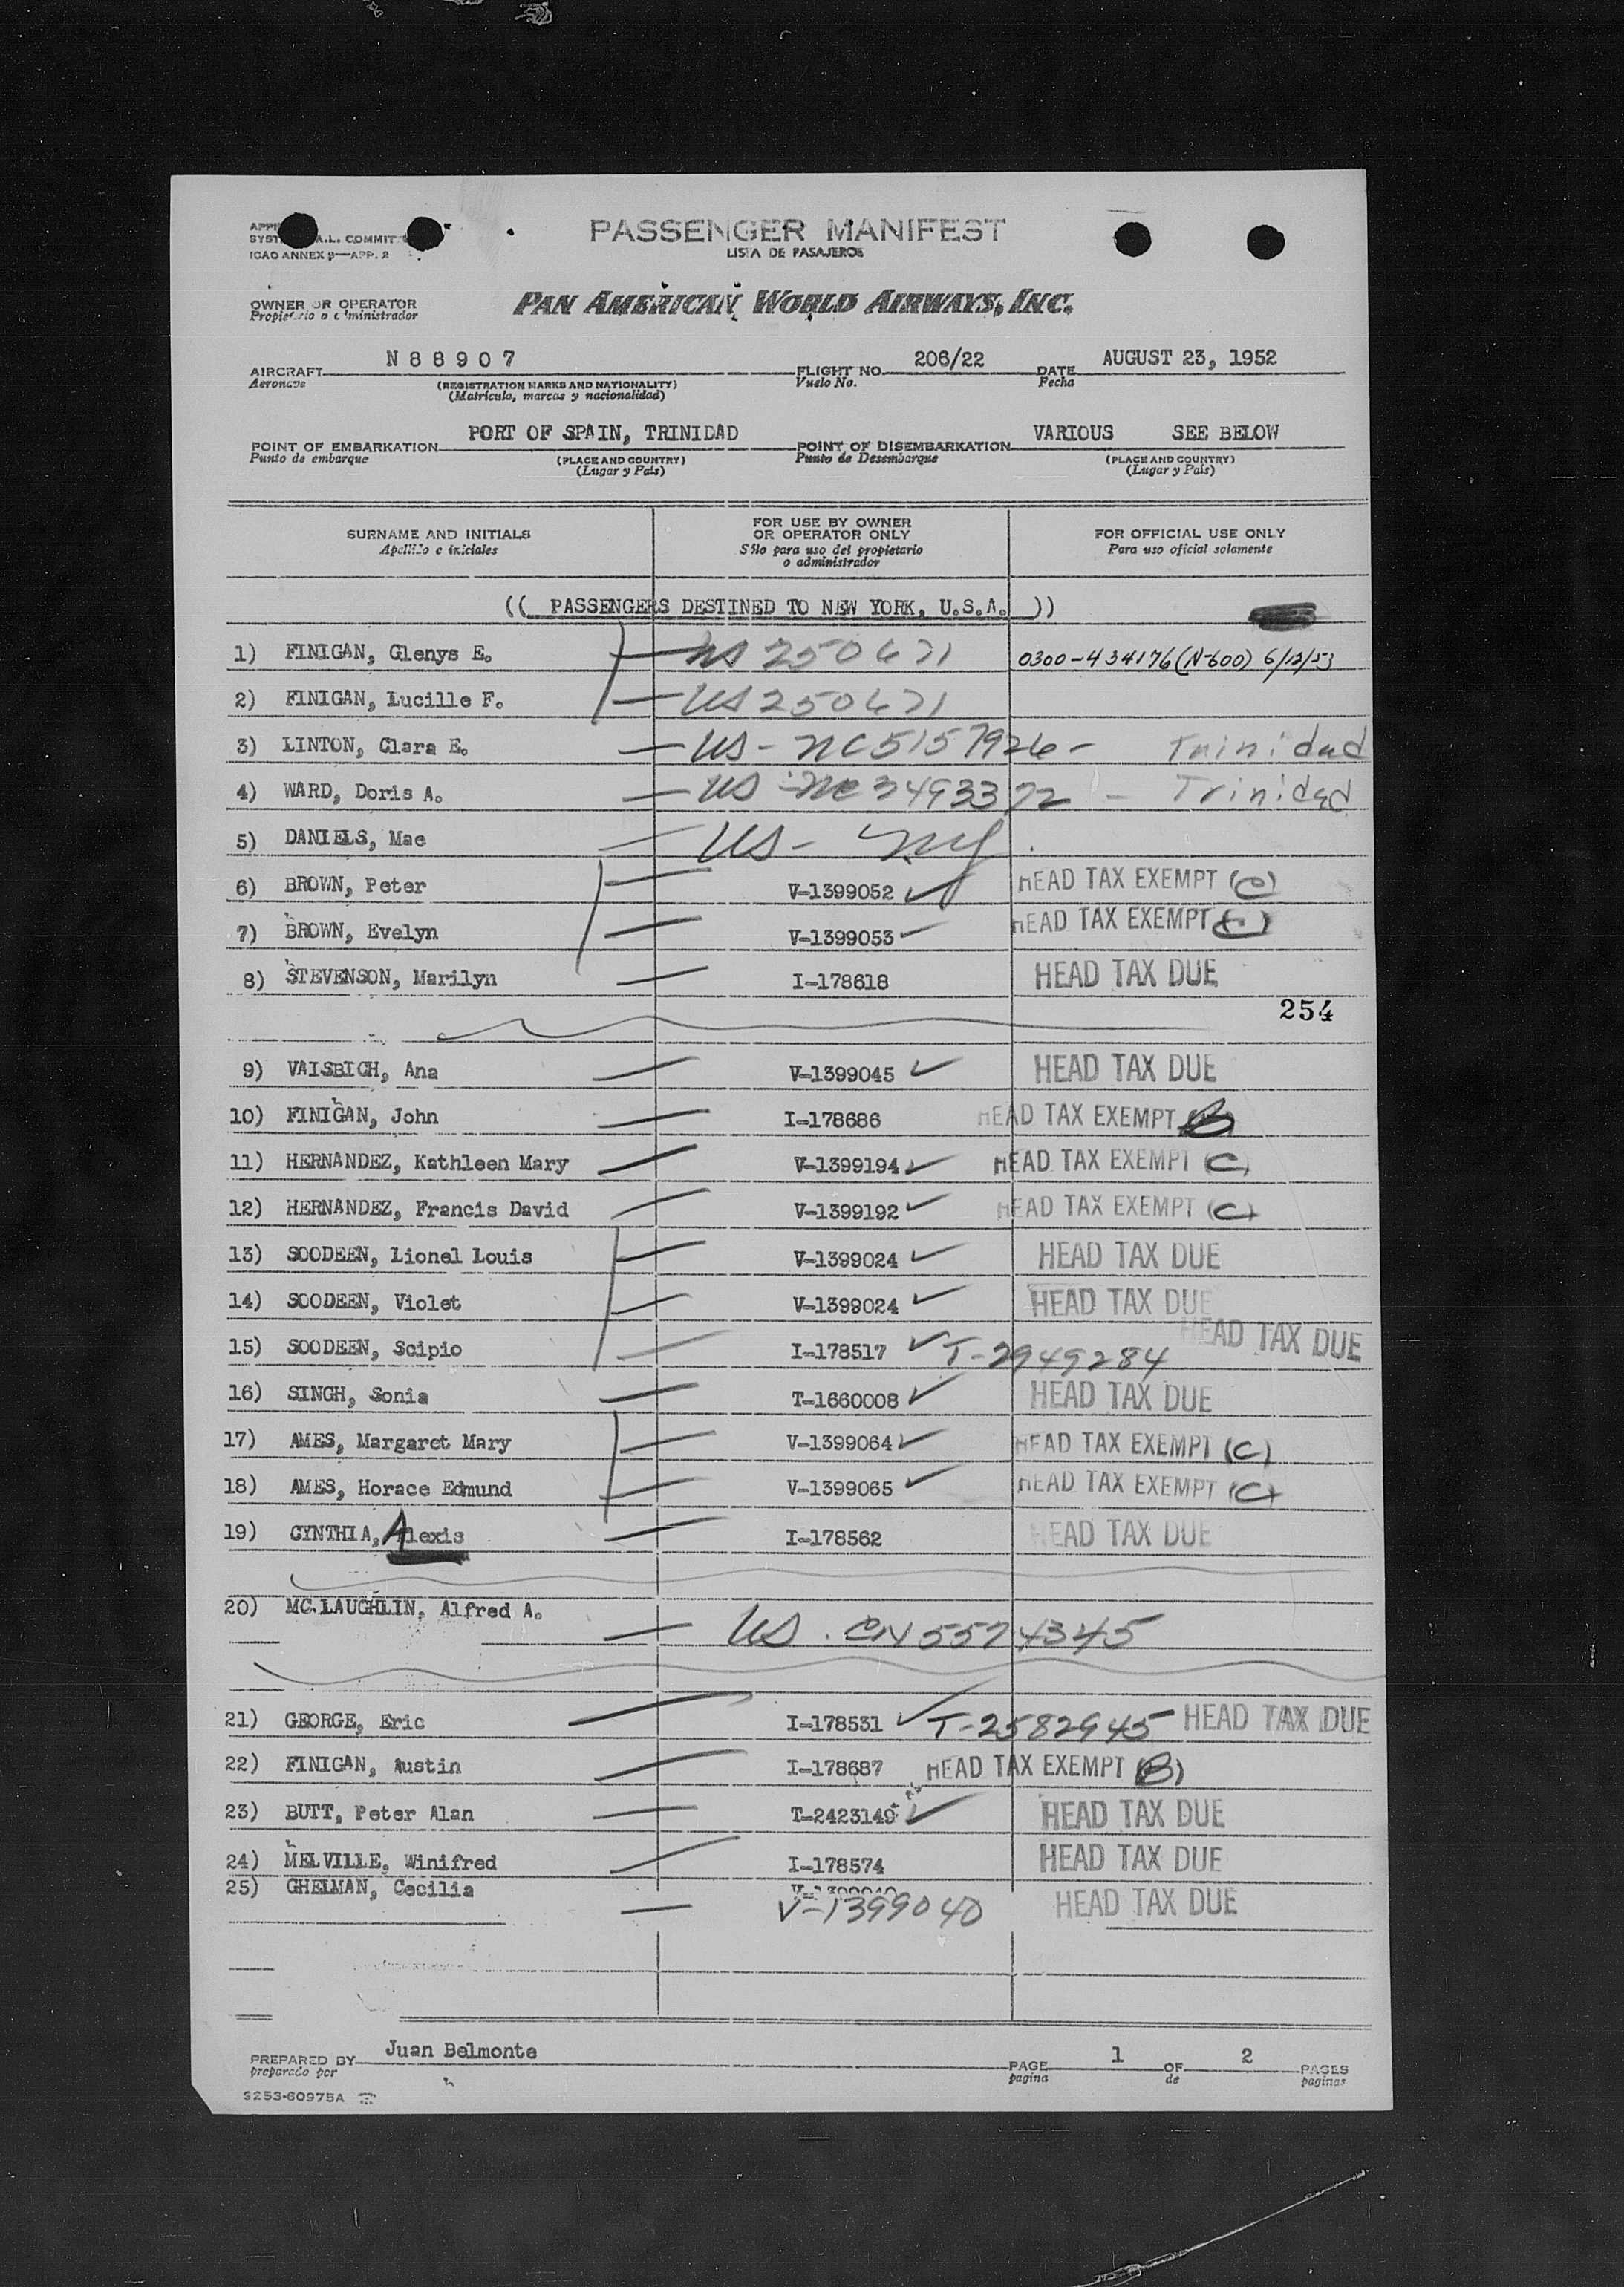 PASSENGER MANIFEST
LISTA DE PASAJEROS
A.L. COMMIT
ICAO ANNEX 9—APP. 2
OWNER OR OPERATOR
Propietario o administrador
PAN AMERICAN WORLD AIRWAYS, INC.
AIRCRAFT N 8 8 9 0 7 FLIGHT NO. 206/22 DATE AUGUST 23, 1952
Aeronave (REGISTRATION MARKS AND NATIONALITY) Vuelo No. Fecha
(Matrícula, marcas y nacionalidad)
POINT OF EMBARKATION PORT OF SPAIN, TRINIDAD POINT OF DISEMBARKATION VARIOUS SEE BELOW
Punto de embarque (PLACE AND COUNTRY) Punto de Desembarque (PLACE AND COUNTRY)
(Lugar y País) (Lugar y País)
SURNAME AND INITIALS FOR USE BY OWNER OR OPERATOR ONLY FOR OFFICIAL USE ONLY
Apellido e iniciales Sólo para uso del propietario o administrador Para uso oficial solamente
(( PASSENGERS DESTINED TO NEW YORK, U.S.A. ))
1) FINIGAN, Glenys E. US 250671 0300-434176 (N-600) 6/12/53
2) FINIGAN, Lucille F. US 250671
3) LINTON, Clara E. US - NC5157926 - Trinidad
4) WARD, Doris A. US - NC 3493372 - Trinidad
5) DANIELS, Mae US - NY
6) BROWN, Peter V-1399052 HEAD TAX EXEMPT (C)
7) BROWN, Evelyn V-1399053 HEAD TAX EXEMPT (C)
8) STEVENSON, Marilyn I-178618 HEAD TAX DUE
254
9) VAISBICH, Ana V-1399045 HEAD TAX DUE
10) FINIGAN, John I-178686 HEAD TAX EXEMPT (B)
11) HERNANDEZ, Kathleen Mary V-1399194 HEAD TAX EXEMPT (C)
12) HERNANDEZ, Francis David V-1399192 HEAD TAX EXEMPT (C)
13) SOODEEN, Lionel Louis V-1399024 HEAD TAX DUE
14) SOODEEN, Violet V-1399024 HEAD TAX DUE
15) SOODEEN, Scipio I-178517 T-2949284 HEAD TAX DUE
16) SINGH, Sonia T-1660008 HEAD TAX DUE
17) AMES, Margaret Mary V-1399064 HEAD TAX EXEMPT (C)
18) AMES, Horace Edmund V-1399065 HEAD TAX EXEMPT (C)
19) CYNTHIA, Alexis I-178562 HEAD TAX DUE
20) MC.LAUGHLIN, Alfred A. US . CN 5574345
21) GEORGE, Eric I-178531 T-2582945 HEAD TAX DUE
22) FINIGAN, Austin I-178687 HEAD TAX EXEMPT (B)
23) BUTT, Peter Alan T-2423149 HEAD TAX DUE
24) MELVILLE, Winifred I-178574 HEAD TAX DUE
25) GHELMAN, Cecilia V-1399040 HEAD TAX DUE
PREPARED BY Juan Belmonte PAGE 1 OF 2 PAGES
preparado por pagina de paginas
9253-60975A